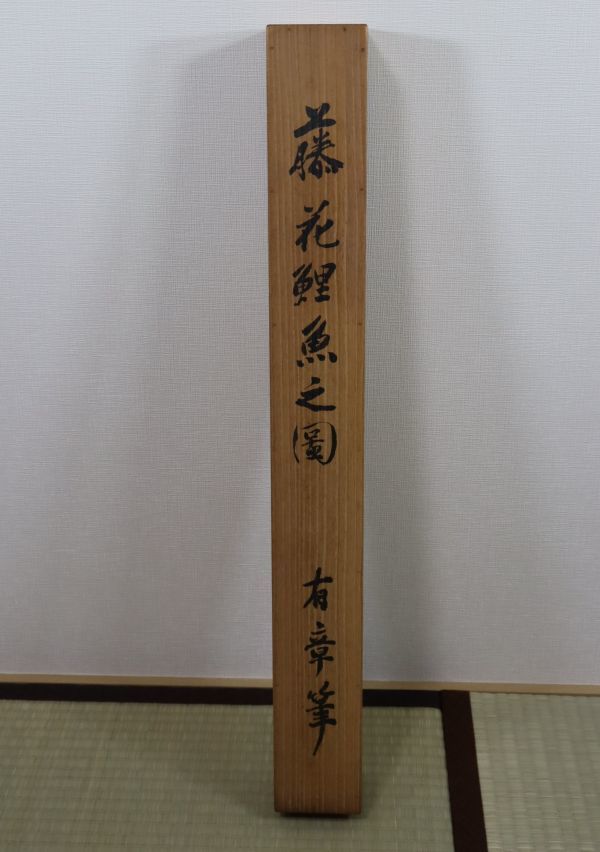 藤花鯉魚之圖 有章筆